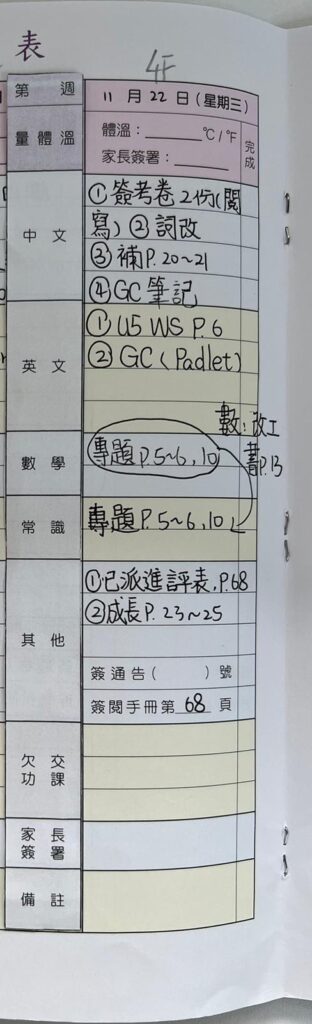 表
4F
第 週
11 月 22 日 (星期三)
量體溫
體溫：______ ℃/℉
家長簽署：______
完成
中文
① 簽考卷 2份(閱
寫) ② 詞改
③ 補P.20~21
④ GC 筆記
英文
① U5 WS P.6
② GC (Padlet)
數：改工
書P.13
數學
專題P.5~6,10
常識
專題 P.5~6,10
其他
①已派進評表,P.68
②成長P.23~25
簽通告( )號
簽閱手冊第 68 頁
欠交
功課
家長
簽署
備註